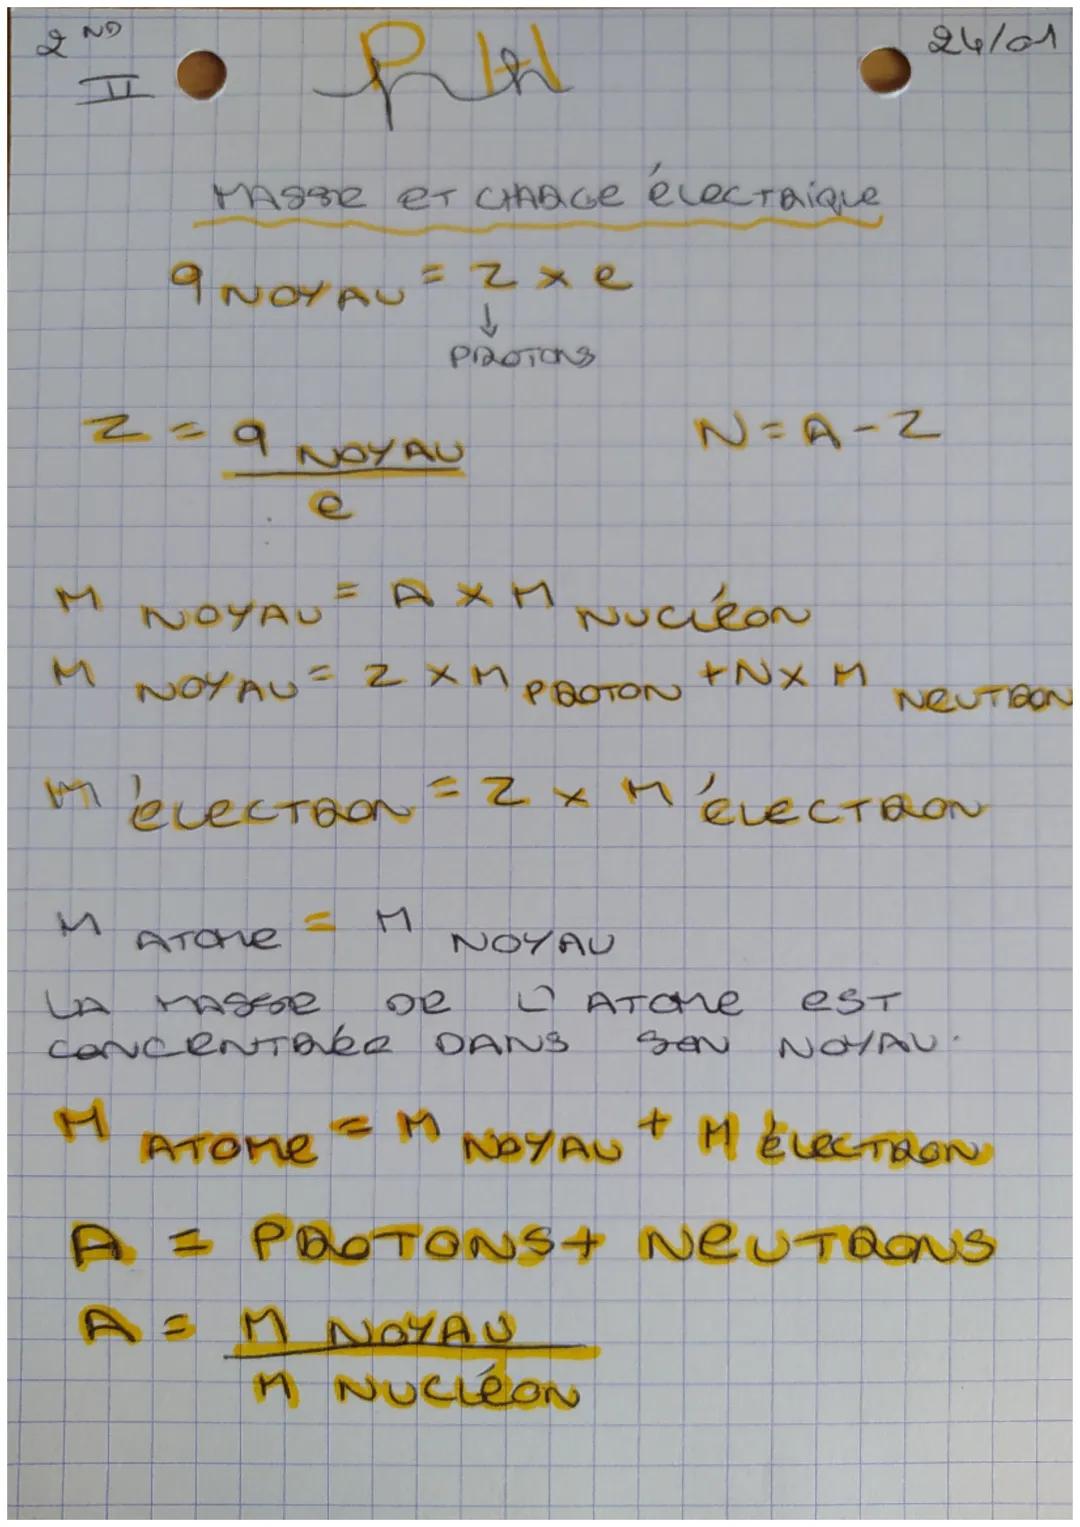 2ND
II
PH
24/01
MASSE ET CHARGE électrique
q NOYAU = Z x e
↓
PROTONS
Z = q NOYAU / e
N = A - Z
M NOYAU = A x M NUCléON
M NOYAU = Z x M PROTON + N x M NEUTRON
M électron = Z x M électron
M ATOME = M NOYAU
LA MASSE DE L'ATOME EST
CONCENTRÉE DANS SON NOYAU.
M ATOME = M NOYAU + M électron
A = PROTONS + NEUTRONS
A = M NOYAU / M NUCléON